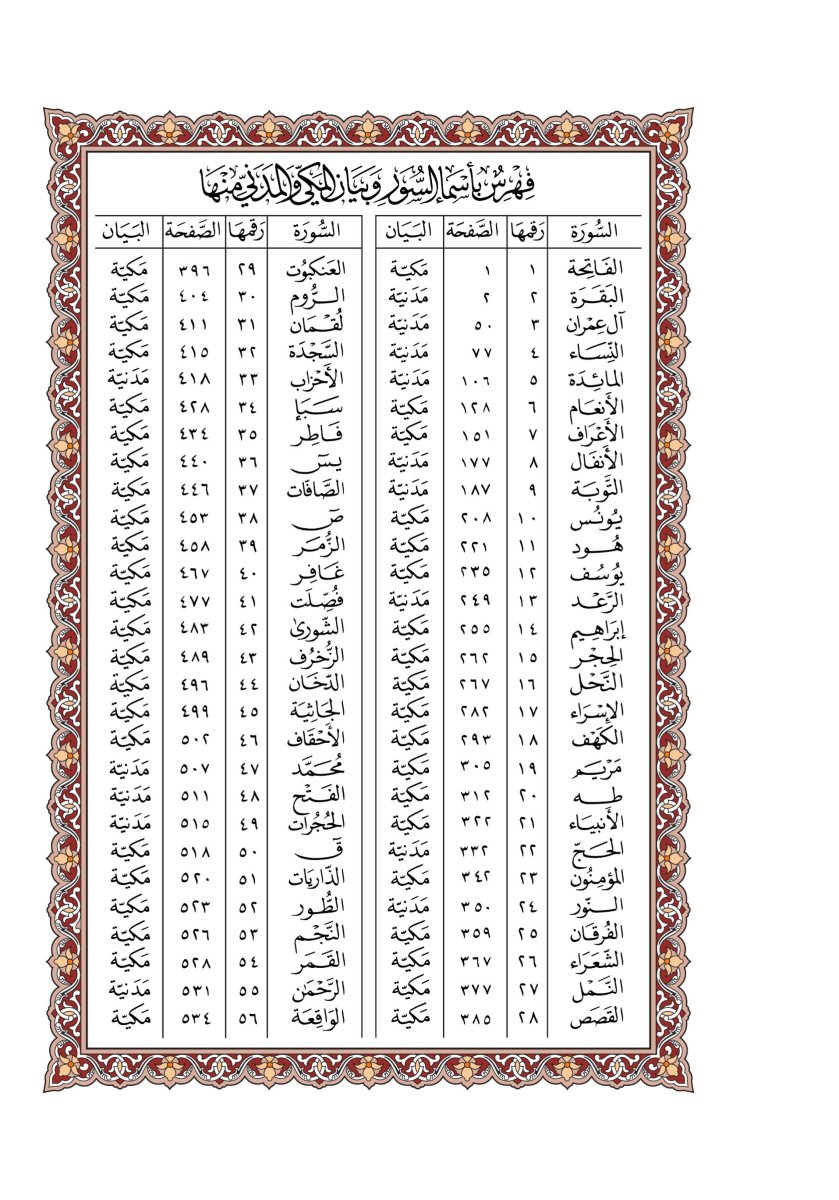 فِهْرِسٌ بِأَسْمَاءِ السُّوَرِ وَبَيَانِ المَكِّيِّ وَالمَدَنِيِّ مِنْهَا
السُّورَة رَقمهَا الصَّفحَة البَيَان السُّورَة رَقمهَا الصَّفحَة البَيَان
الفَاتِحَة ١ ١ مَكيّة العَنكبُوت ٢٩ ٣٩٦ مَكيّة
البَقَرَة ٢ ٢ مَدَنيّة الرُّوم ٣٠ ٤٠٤ مَكيّة
آل عِمْرَان ٣ ٥٠ مَدَنيّة لُقمَان ٣١ ٤١١ مَكيّة
النِّسَاء ٤ ٧٧ مَدَنيّة السَّجْدَة ٣٢ ٤١٥ مَكيّة
المائِدَة ٥ ١٠٦ مَدَنيّة الأَحْزاب ٣٣ ٤١٨ مَدَنيّة
الأَنعَام ٦ ١٢٨ مَكيّة سَبَإ ٣٤ ٤٢٨ مَكيّة
الأَعْرَاف ٧ ١٥١ مَكيّة فَاطِر ٣٥ ٤٣٤ مَكيّة
الأَنفَال ٨ ١٧٧ مَدَنيّة يسٓ ٣٦ ٤٤٠ مَكيّة
التَّوبَة ٩ ١٨٧ مَدَنيّة الصَّافات ٣٧ ٤٤٦ مَكيّة
يُونُس ١٠ ٢٠٨ مَكيّة صٓ ٣٨ ٤٥٣ مَكيّة
هُود ١١ ٢٢١ مَكيّة الزُّمَر ٣٩ ٤٥٨ مَكيّة
يُوسُف ١٢ ٢٣٥ مَكيّة غَافِر ٤٠ ٤٦٧ مَكيّة
الرَّعْد ١٣ ٢٤٩ مَدَنيّة فُصِّلَت ٤١ ٤٧٧ مَكيّة
إبرَاهِيم ١٤ ٢٥٥ مَكيّة الشّورىٰ ٤٢ ٤٨٣ مَكيّة
الحِجْر ١٥ ٢٦٢ مَكيّة الزُّخرُف ٤٣ ٤٨٩ مَكيّة
النَّحْل ١٦ ٢٦٧ مَكيّة الدّخَان ٤٤ ٤٩٦ مَكيّة
الإسْرَاء ١٧ ٢٨٢ مَكيّة الجَاثِيَة ٤٥ ٤٩٩ مَكيّة
الكَهْف ١٨ ٢٩٣ مَكيّة الأَحْقاف ٤٦ ٥٠٢ مَكيّة
مَرْيَم ١٩ ٣٠٥ مَكيّة مُحَمَّد ٤٧ ٥٠٧ مَدَنيّة
طه ٢٠ ٣١٢ مَكيّة الفَتْح ٤٨ ٥١١ مَدَنيّة
الأَنبيَاء ٢١ ٣٢٢ مَكيّة الحُجُرات ٤٩ ٥١٥ مَدَنيّة
الحَجّ ٢٢ ٣٣٢ مَدَنيّة قٓ ٥٠ ٥١٨ مَكيّة
المُؤمِنُون ٢٣ ٣٤٢ مَكيّة الذّاريَات ٥١ ٥٢٠ مَكيّة
النّور ٢٤ ٣٥٠ مَدَنيّة الطُّور ٥٢ ٥٢٣ مَكيّة
الفُرقَان ٢٥ ٣٥٩ مَكيّة النَّجْم ٥٣ ٥٢٦ مَكيّة
الشّعَرَاء ٢٦ ٣٦٧ مَكيّة القَمَر ٥٤ ٥٢٨ مَكيّة
النَّمل ٢٧ ٣٧٧ مَكيّة الرَّحْمٰن ٥٥ ٥٣١ مَدَنيّة
القَصَص ٢٨ ٣٨٥ مَكيّة الوَاقِعَة ٥٦ ٥٣٤ مَكيّة